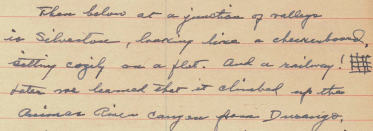 Then below at a junction of valleys
is Silverton, looking like a checkerboard,
sitting cozily on a flat. And a railway!
Later we learned that it climbed up the
Animas River canyon from Durango,